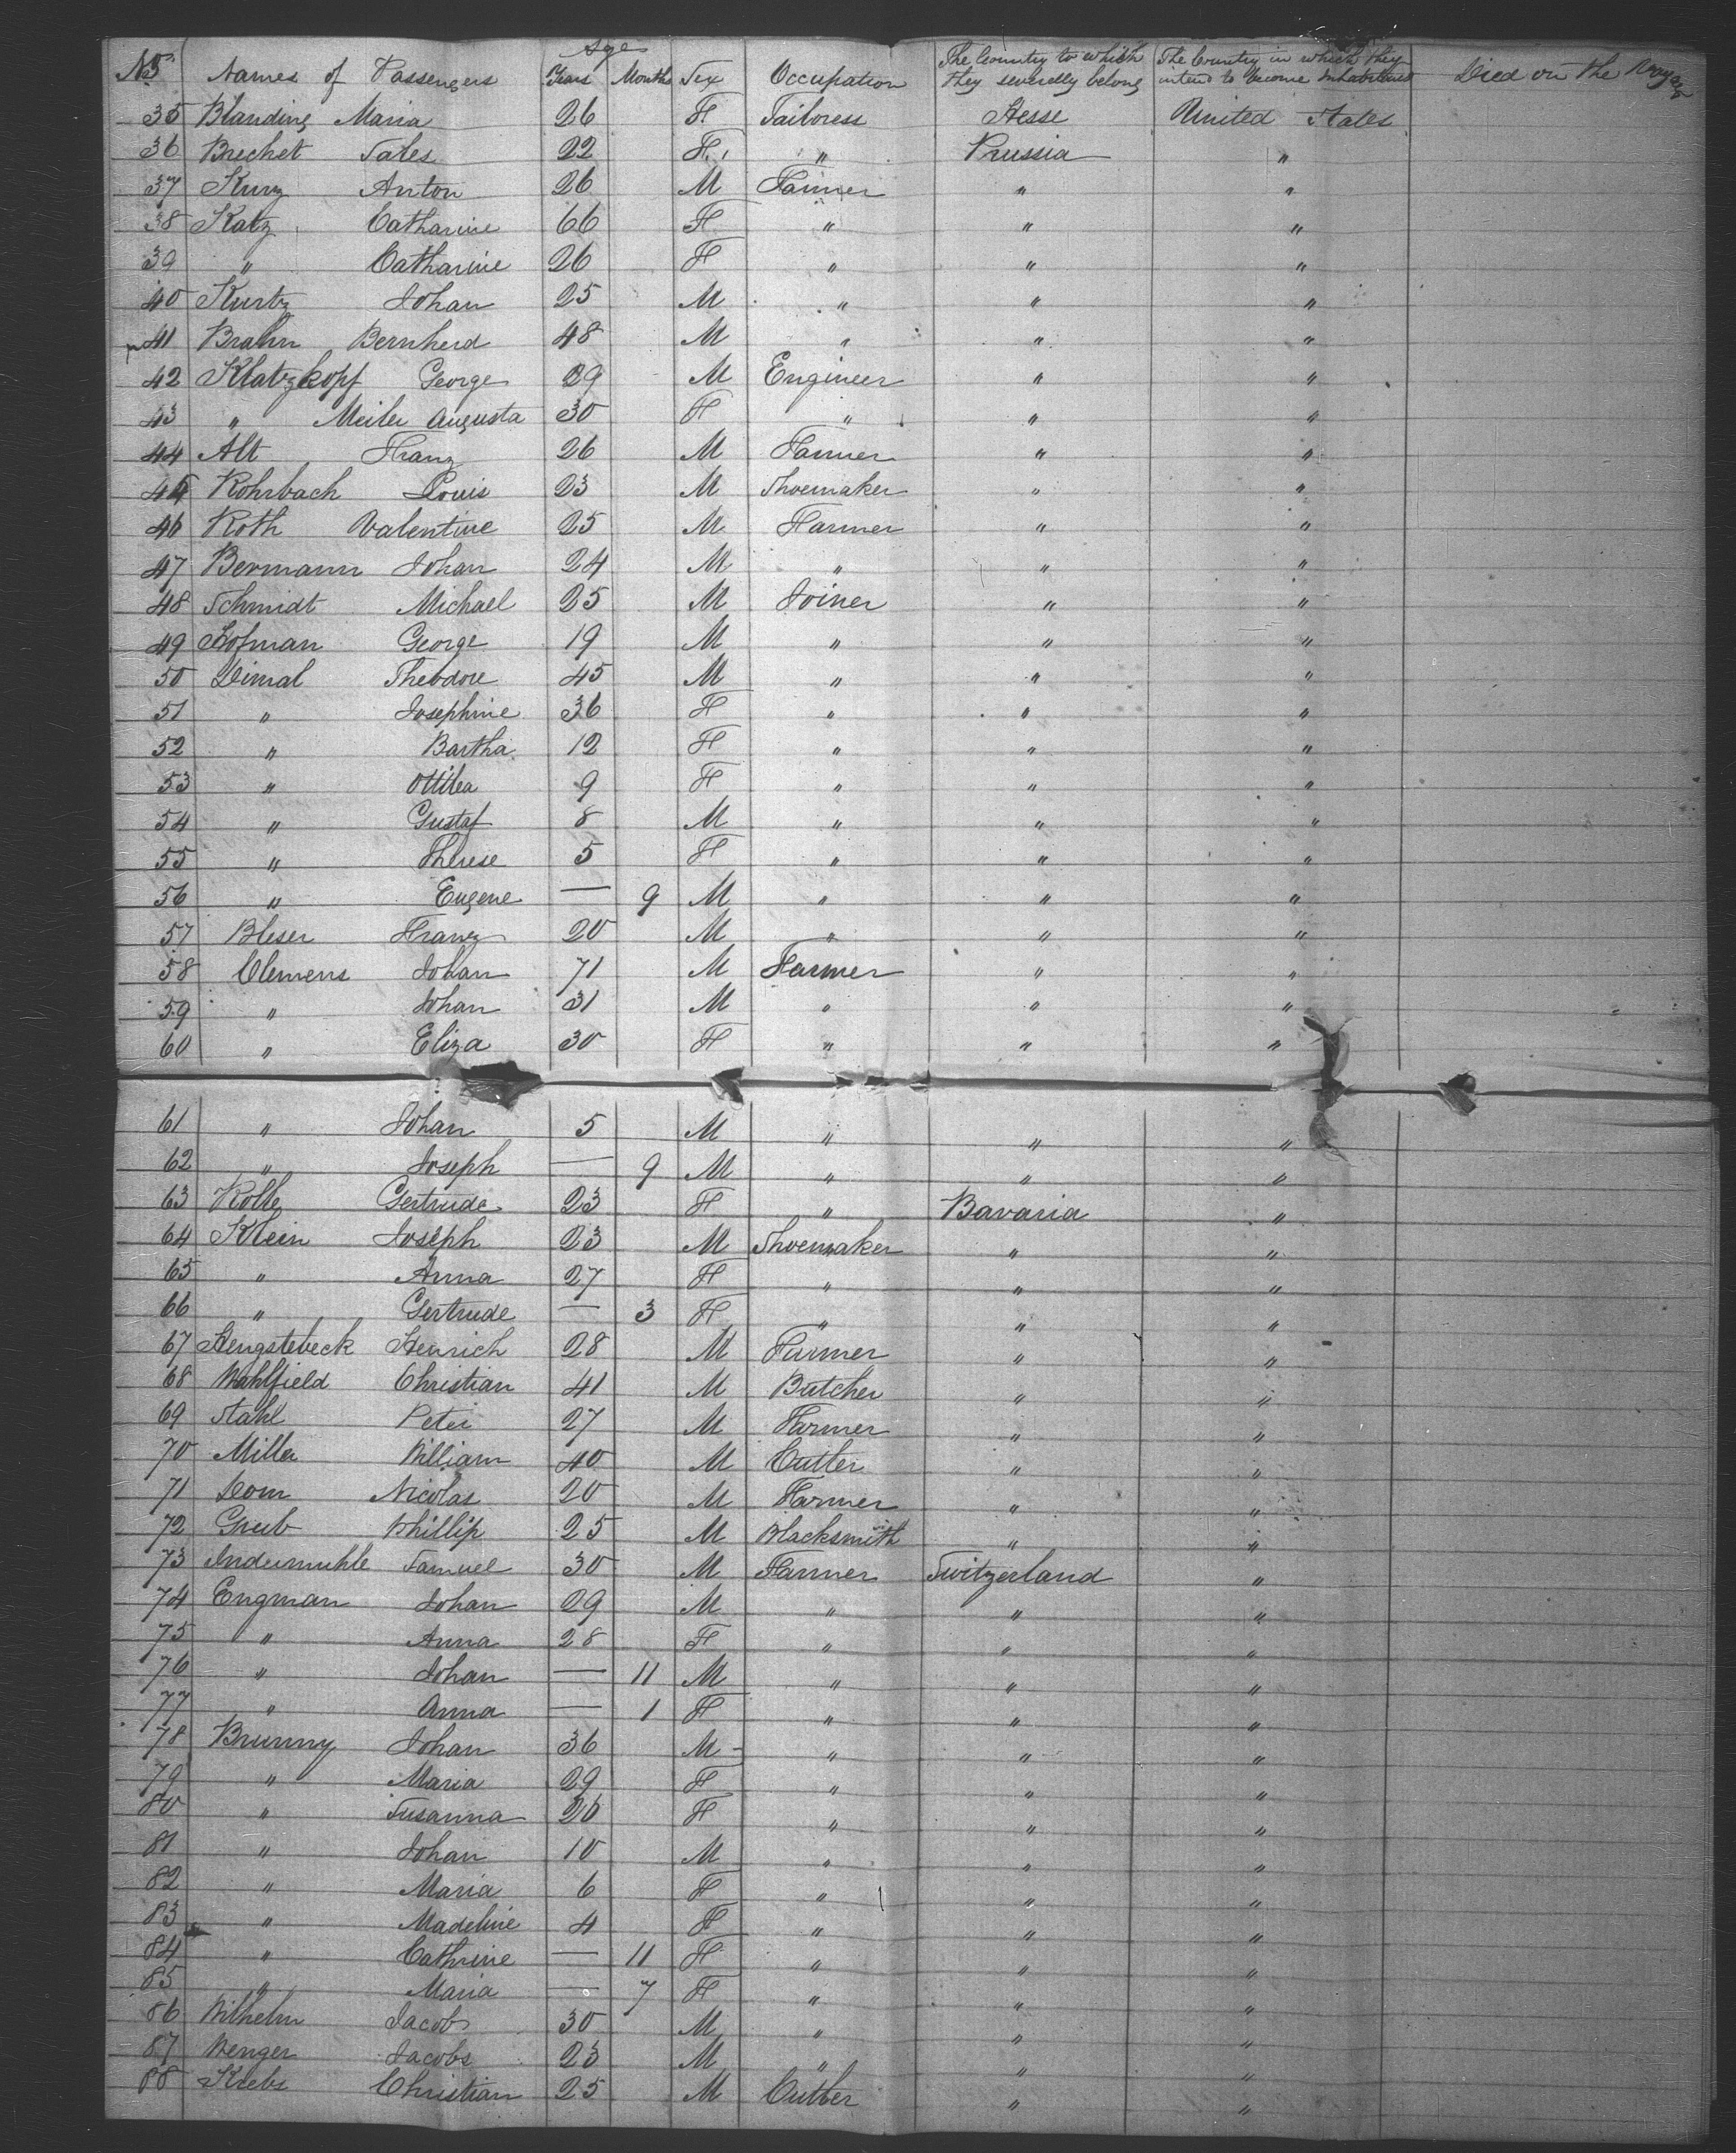 Age
No Names of Passengers Years Months Sex Occupation The Country to which they severelly belong The Country in which they intend to become Inhabitants Died on the Voyage
35 Blanding Maria 26 F Tailoress Hesse United States
36 Brechet Sales 22 F " Prussia "
37 Kurz Anton 26 M Farmer " "
38 Katz Catharine 66 F " " "
39 " Catharine 26 F " " "
40 Kurtz Johan 25 M " " "
41 Brahn Bernherd 48 M " " "
42 Klatzkopf George 29 M Engineer " "
43 " Meiler Augusta 30 F " " "
44 Alt Franz 26 M Farmer " "
45 Rohrbach Louis 23 M Shoemaker " "
46 Roth Valentine 25 M Farmer " "
47 Bermann Johan 24 M " " "
48 Schmidt Michael 25 M Joiner " "
49 Hofman George 19 M " " "
50 Dimal Theodore 45 M " " "
51 " Josephine 36 F " " "
52 " Bartha 12 F " " "
53 " Ottilea 9 F " " "
54 " Gustaf 8 M " " "
55 " Therese 5 F " " "
56 " Eugene — 9 M " " "
57 Bleser Franz 20 M " " "
58 Clemens Johan 71 M Farmer " "
59 " Johan 31 M " " "
60 " Eliza 30 F " " "
61 " Johan 5 M " " "
62 " Joseph — 9 M " " "
63 Kolle Gertrude 23 F " Bavaria "
64 Klein Joseph 23 M Shoemaker " "
65 " Anna 27 F " " "
66 " Gertrude — 3 F " " "
67 Hengstebeck Henrich 28 M Farmer " "
68 Wahlfield Christian 41 M Butcher " "
69 Stahl Peter 27 M Farmer " "
70 Miller William 40 M Cutler " "
71 Dom Nicolas 20 M Farmer " "
72 Grub Phillip 25 M Blacksmith " "
73 Indermuhle Samuel 30 M Farmer Switzerland "
74 Engman Johan 29 M " " "
75 " Anna 28 F " " "
76 " Johan — 11 M " " "
77 " Anna — 1 F " " "
78 Brunny Johan 36 M " " "
79 " Maria 29 F " " "
80 " Susanna 26 F " " "
81 " Johan 10 M " " "
82 " Maria 6 F " " "
83 " Madeline 4 F " " "
84 " Cathrine — 11 F " " "
85 " Maria — 7 F " " "
86 Wilhelm Jacob 30 M " " "
87 Wenger Jacobs 23 M " " "
88 Krebs Christian 25 M Cutler " "